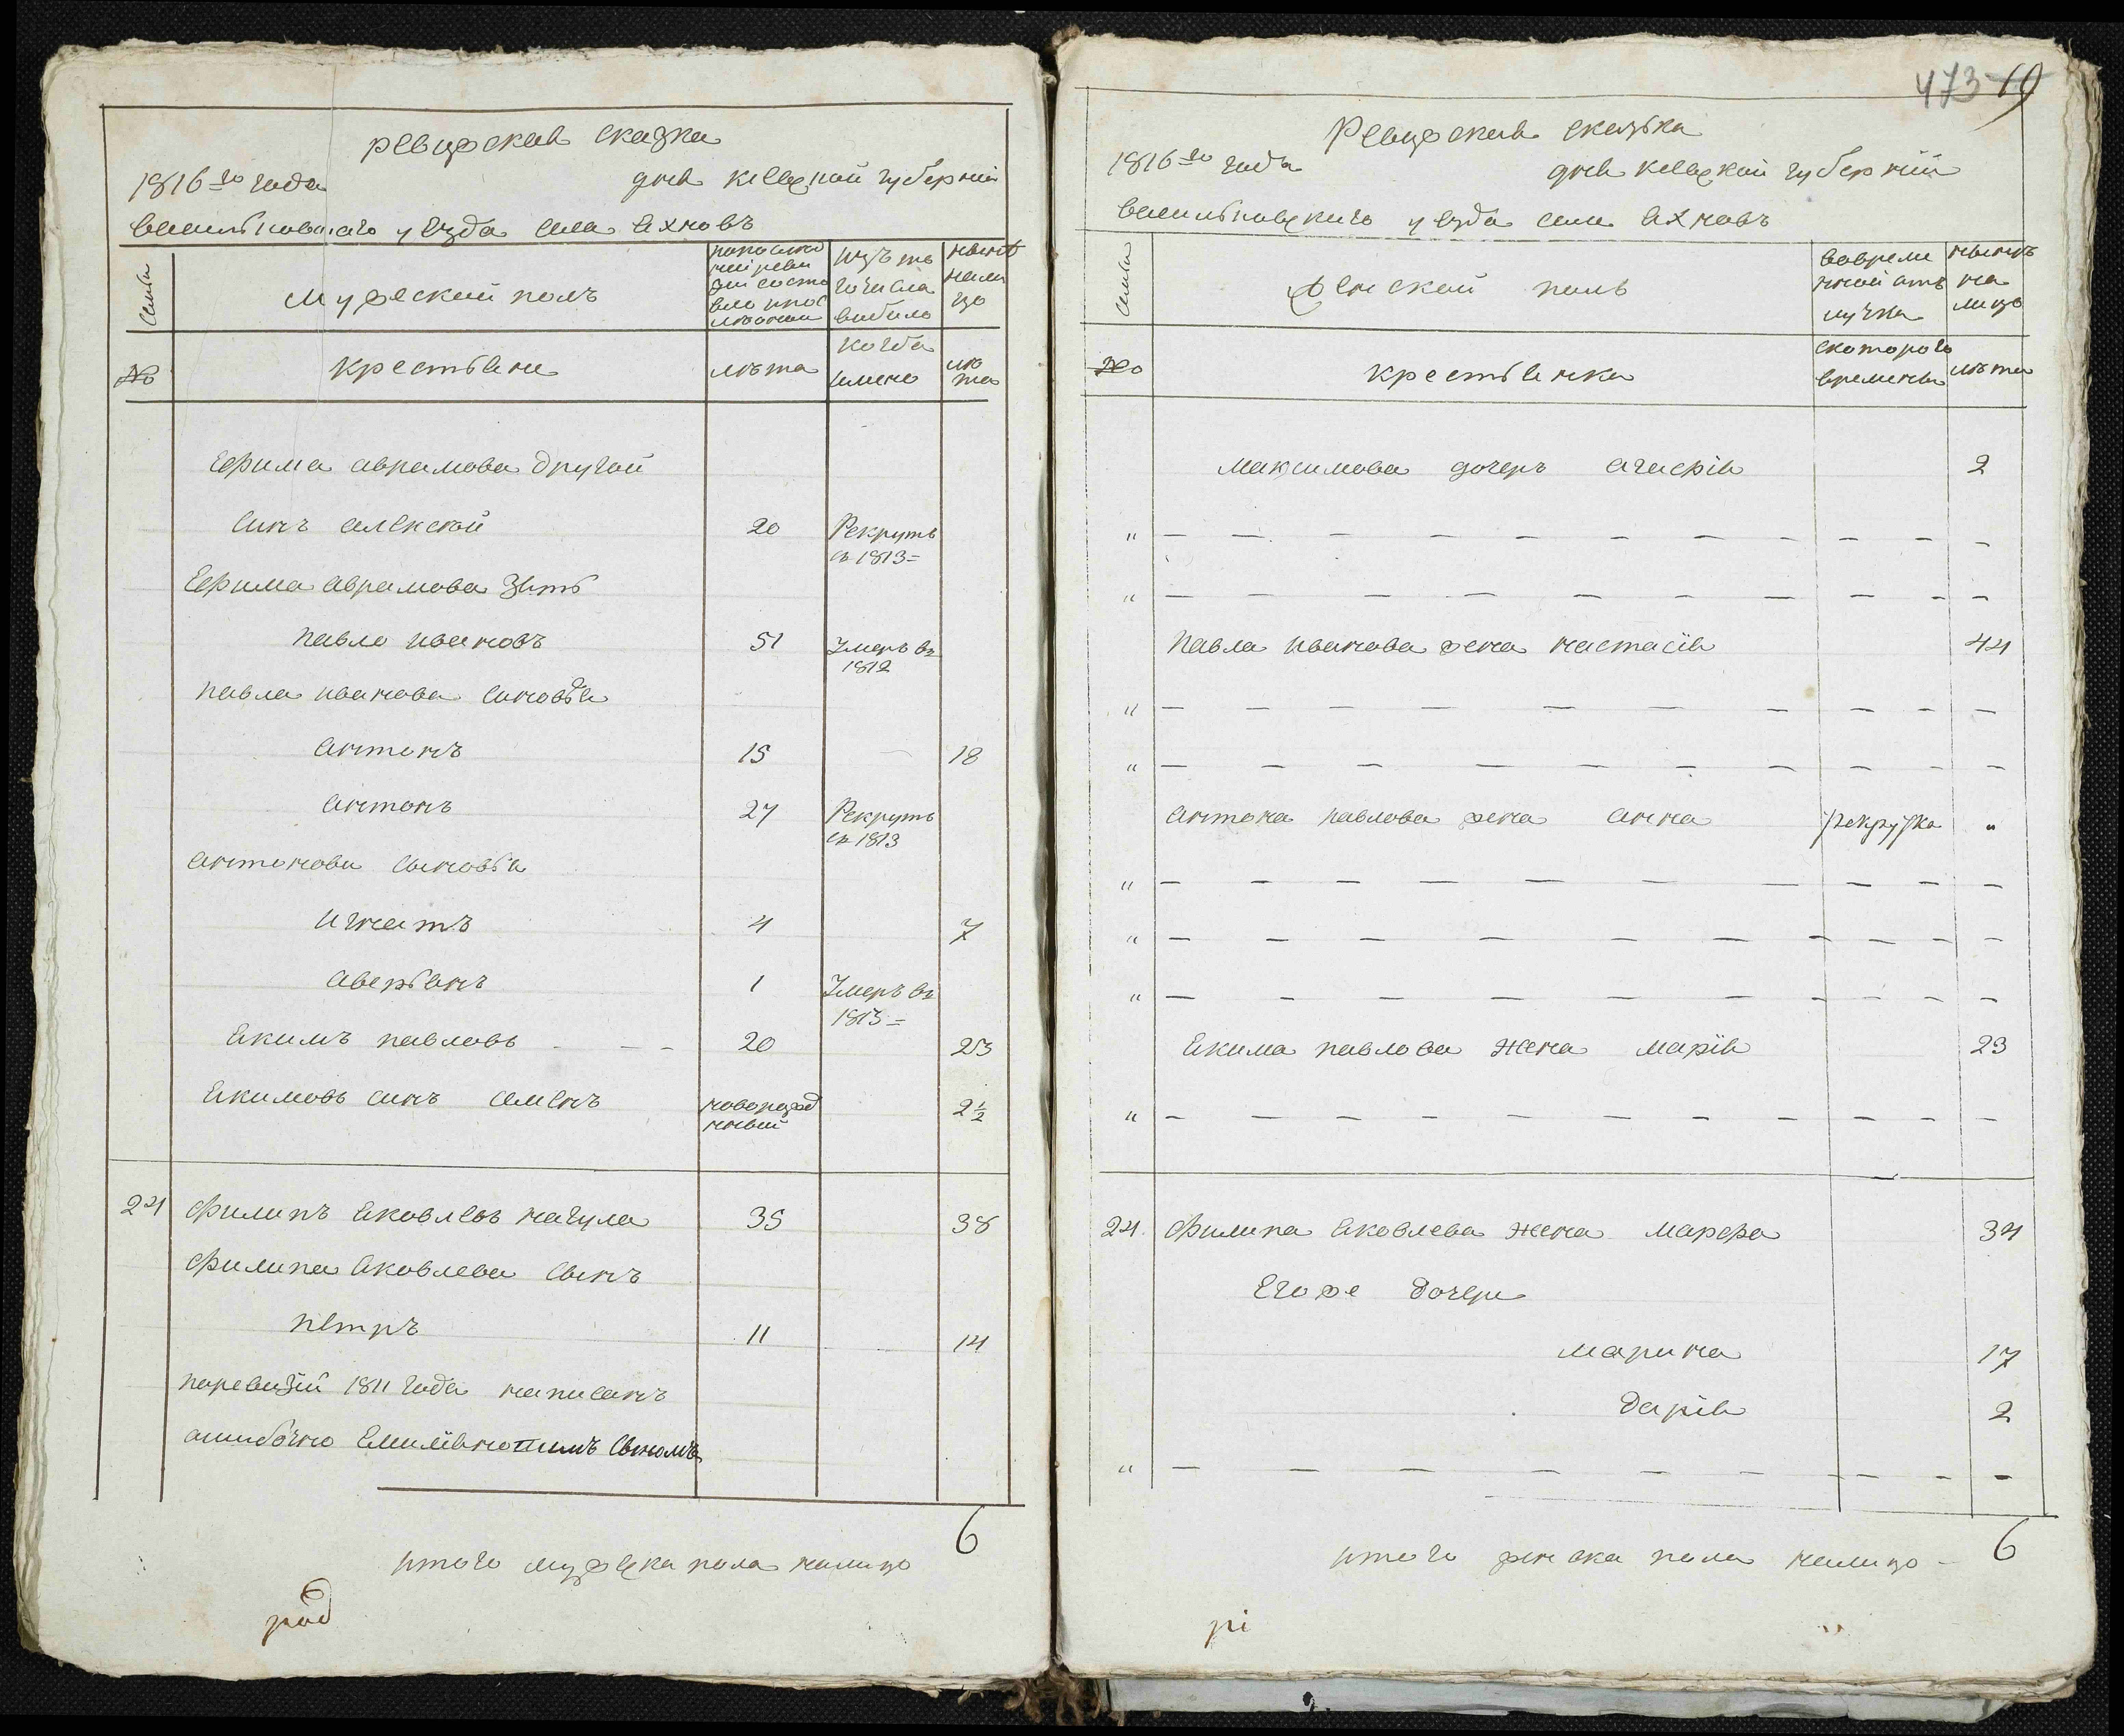 ревизская сказка
1816-го года дня Киевской губернии
Васильковскаго уезда села Яхновъ
Семьи
Мужеский полъ
попослед
ней реви
зіи состо
яло и пос
ле оной
Изъ то
го числа
выбыло
ныне
нали
цо
№
Крестьяне
лета
когда
имено
ле
та
Ефима Аврамова другой
синъ Алексей 20 Рекрутъ
въ 1813 =
Ефима Аврамова Зять
Павло Ивановъ 51 Умеръ въ
1812
Павла Иванова синовья
Антонъ 15 18
Антонъ 27 Рекрутъ
въ 1813
Антонови сыновья
Игнатъ 4 7
Аверьянъ 1 Умеръ въ
1813 =
Якимъ Павловъ - - - 20 23
Якимовъ синъ Семенъ новорожд
енный 2½
24 Филипъ Яковлевъ Нагула 35 38
Филипа Яковлева сынъ
Петръ 11 14
поревизіи 1811 года написанъ
ошибочно сыномъ
6
итого мужеска пола налицо
род
473 19
Ревизская сказка
1816-го года дня Киевской губерніи
Васильковскаго уезда села Яхновъ
Семьи
Женской полъ
вовреме
нной отъ
лучке
ныне
на
лицо
№
Крестьянки
скоторого
времены
лета
Максимова дочеръ Агафія 2
" — — — — — — — — — — —
" — — — — — — — — — —
Павла Иванова жена Настасія 44
" — — — — — — — — — —
" — — — — — — — — — —
Антона Павлова жена Анна рекрутка "
" — — — — — — — — — —
" — — — — — — — — — —
" — — — — — — — — — —
Якима Павлова жена Марія 23
" — — — — — — — — — — —
24. Филипа Яковлева жена Марфа 34
Егоже дочери
Марина 17
Дарія 2
" — — — — — — — — — —
итого женска пола налицо - 6
рі